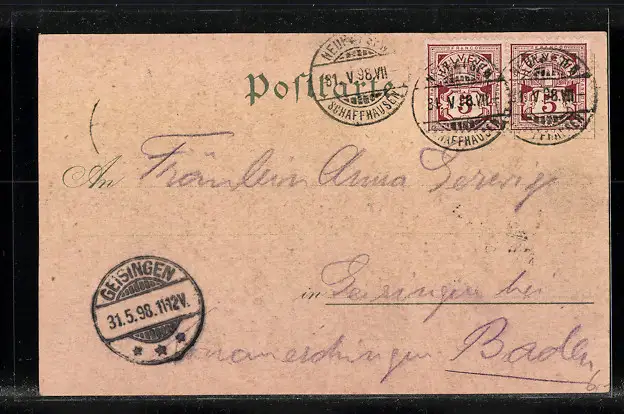 Postkarte
NEUHAUSEN
31.V.98.VII
SCHAFFHAUSEN
31.V.98.VII
SCHAFFHAUSEN
V.98.VII
5
5
An Fräulein Anna Gerwig
in Geisingen bei
Donaueschingen Baden
GEISINGEN
31.5.98.11-12V.